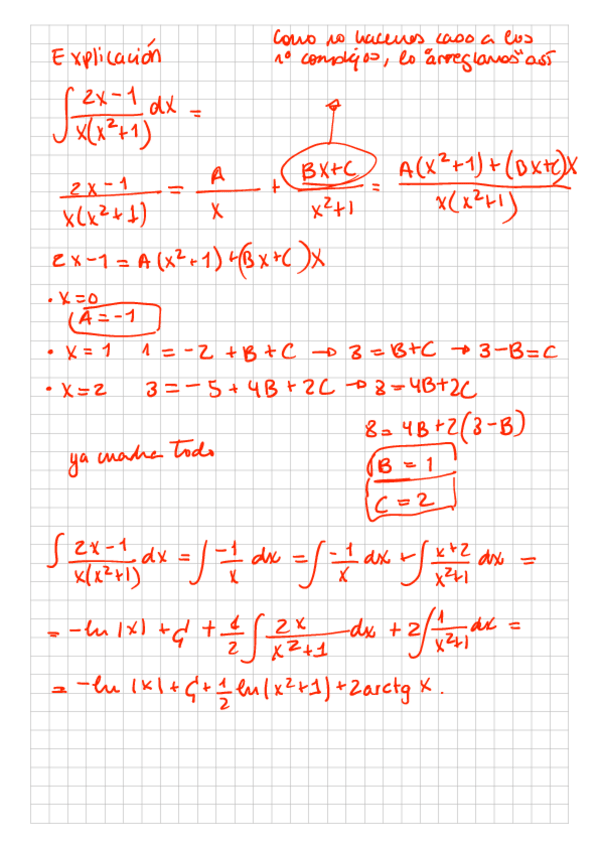 Explicación
Como no hacemos caso a los
nº complejos, lo "arreglamos" así
∫ (2x-1)/(x(x²+1)) dx =
(2x-1)/(x(x²+1)) = A/x + (Bx+C)/(x²+1) = (A(x²+1)+(Bx+C)x)/(x(x²+1))
2x-1 = A(x²+1)+(Bx+C)x
• x=0
A=-1
• x=1 1=-2+B+C → 3=B+C → 3-B=C
• x=2 3=-5+4B+2C → 8=4B+2C
8=4B+2(3-B)
ya cuadra Todo
B=1
C=2
∫ (2x-1)/(x(x²+1)) dx = ∫ -1/x dx = ∫ -1/x dx + ∫ (x+2)/(x²+1) dx =
= -ln|x| + C + 1/2 ∫ 2x/(x²+1) dx + 2∫ 1/(x²+1) dx =
= -ln|x| + C + 1/2 ln(x²+1) + 2arctg x.